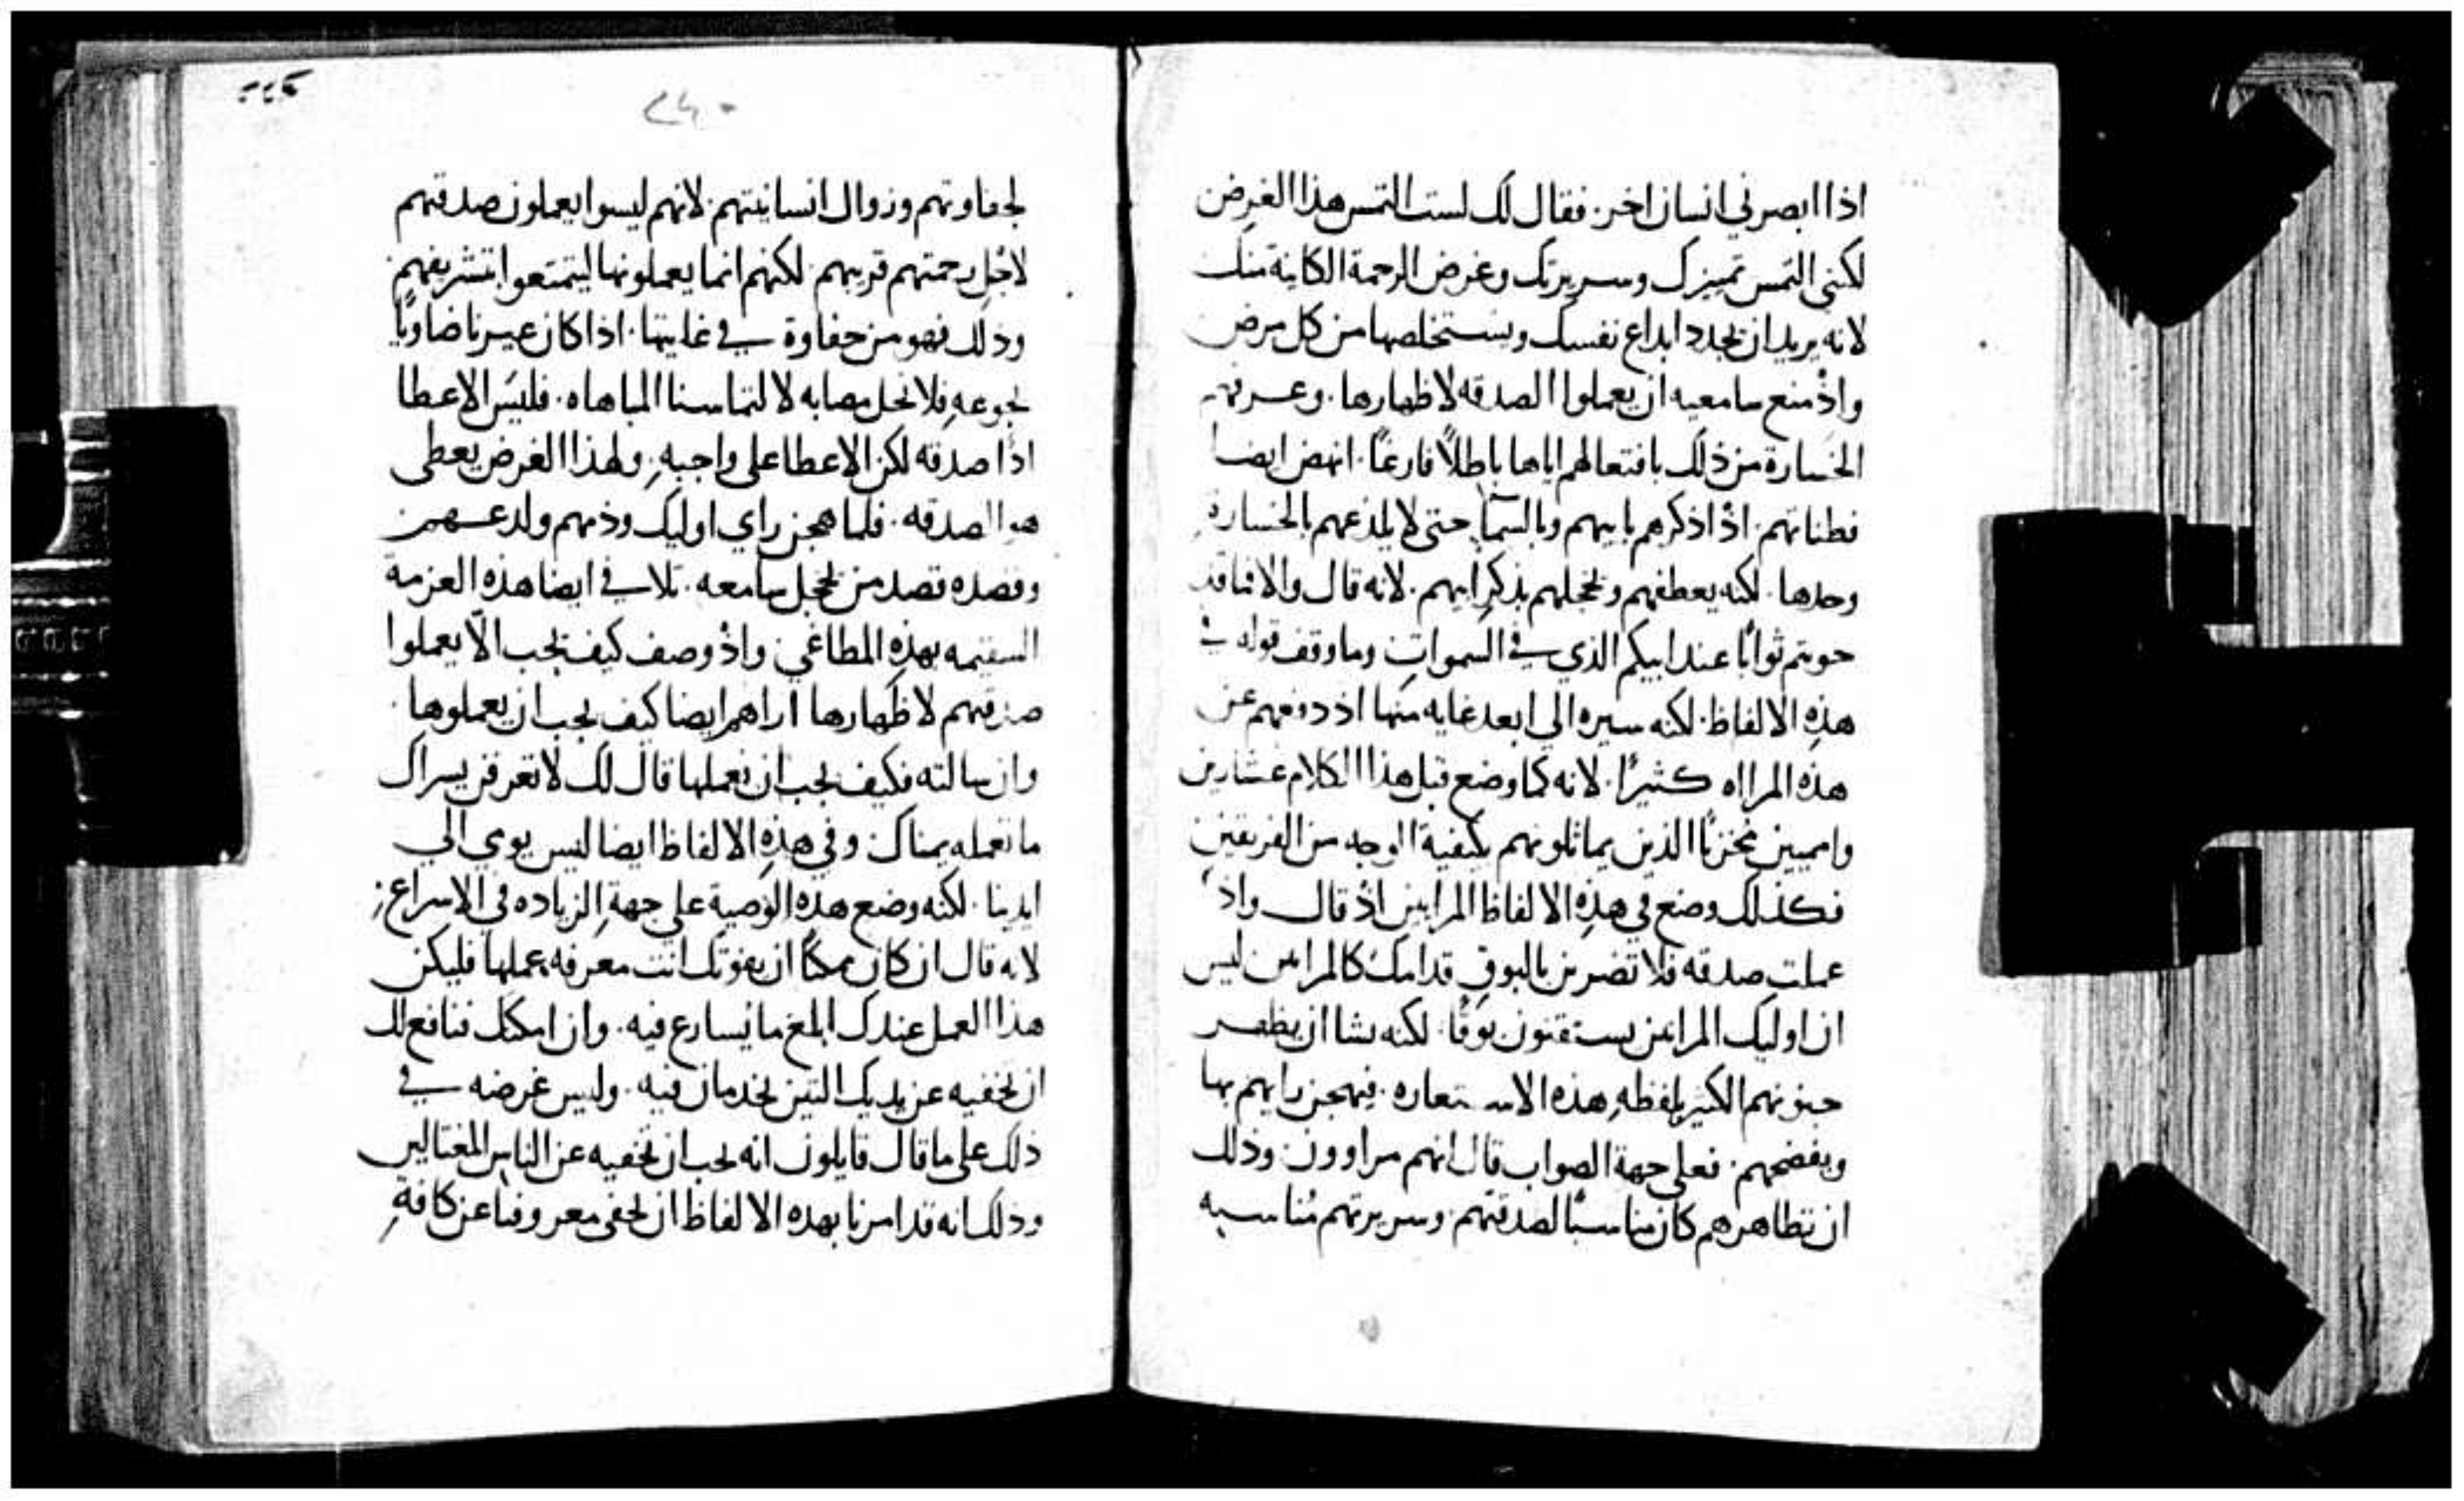 اذا ابصرني انسان اخر. فقال لك لست التمس هذا الغرض
لكنني التمس تمييزك وسريرتك وغرض الرحمة الكاينة منك
لانه يريد ان يجدد ابداع نفسك ويستخلصها من كل مرض
واذ منع سامعيه ان يعملوا الصدقه لاظهارها. وعرفهم
الخسارة من ذلك بافتعالهم اياها باطلاً فارغًا. انهض ايضا
فطناتهم. اذ اذكرهم بابيهم وبالسما حتى لا يلذعهم بالخسارة
وحدها. لكنه يعطفهم ويخجلهم بذكر ابيهم. لانه قال والا فما قد
حويتم ثوابًا عند ابيكم الذي في السموات وما وقف قوله في
هذه الالفاظ. لكنه سيره الي ابعد غايه منها اذ دفعهم عن
هذه المرااه كثيرًا. لانه كما وضع قبل هذا الكلام عشارين
واميين مخزيًا الذين يماثلونهم بكيفية الوجه من الفريقين
فكذلك وضع في هذه الالفاظ المرايين اذ قال واذا
عملت صدقه فلا تضربن بالبوق قدامك كالمرايين ليس
ان اوليك المرايين يستقنون بوقًا. لكنه يشا ان يظهر
جنونهم الكبير بلفظه هذه الاستعاره. فيهجن رايهم بها
ويفضحهم. فعلي جهة الصواب قال انهم مراوون وذلك
ان تظاهرهم كان مناسبًا لصدقتهم وسريرتهم مناسبه
٢٤٠
لجفاوتهم وزوال انسانيتهم. لانهم ليسوا يعملون صدقتهم
لاجل رحمتهم قريبهم. لكنهم انما يعملونها ليتمتعوا بتشريفهم
وذلك فهو من جفاوة في غايتها. اذا كان غيرنا ضاويًا
بجوعه فلا نحل مصابه لالتماسنا المباهاه. فليس الاعطا
اذًا صدقه لكن الاعطا على واجبه. ولهذا الغرض يعطى
هو الصدقه. فلما هجن راي اوليك وذمهم ولدعهم
وقصده قصد من يخجل سامعه. تلافي ايضا هذه العزمة
السقيمه بهذه المطاغي واذ وصف كيف يجب الا يعملوا
صدقتهم لاظهارها اراهم ايضا كيف يجب ان يعملوها
وان سالته فكيف يجب ان نعملها قال لك لا تعرفن يسراك
ما تعمله يمناك وفي هذه الالفاظ ايضا ليس يومي الي
ايدينا. لكنه وضع هذه الوصية علي جهة الزياده في الاسراع
لانه قال ان كان ممكنًا ان يفوتك انت معرفه عملها فليكن
هذا العمل عندك ابلغ ما يسارع فيه. وان امكنك فنافع لك
ان تخفيه عن يديك التين تخدمان فيه. وليس غرضه في
ذلك علي ما قال قايلون انه يجب ان تخفيه عن الناس المغتالين
وذلك انه قد امرنا بهذه الالفاظ ان نخفي معروفنا عن كافة